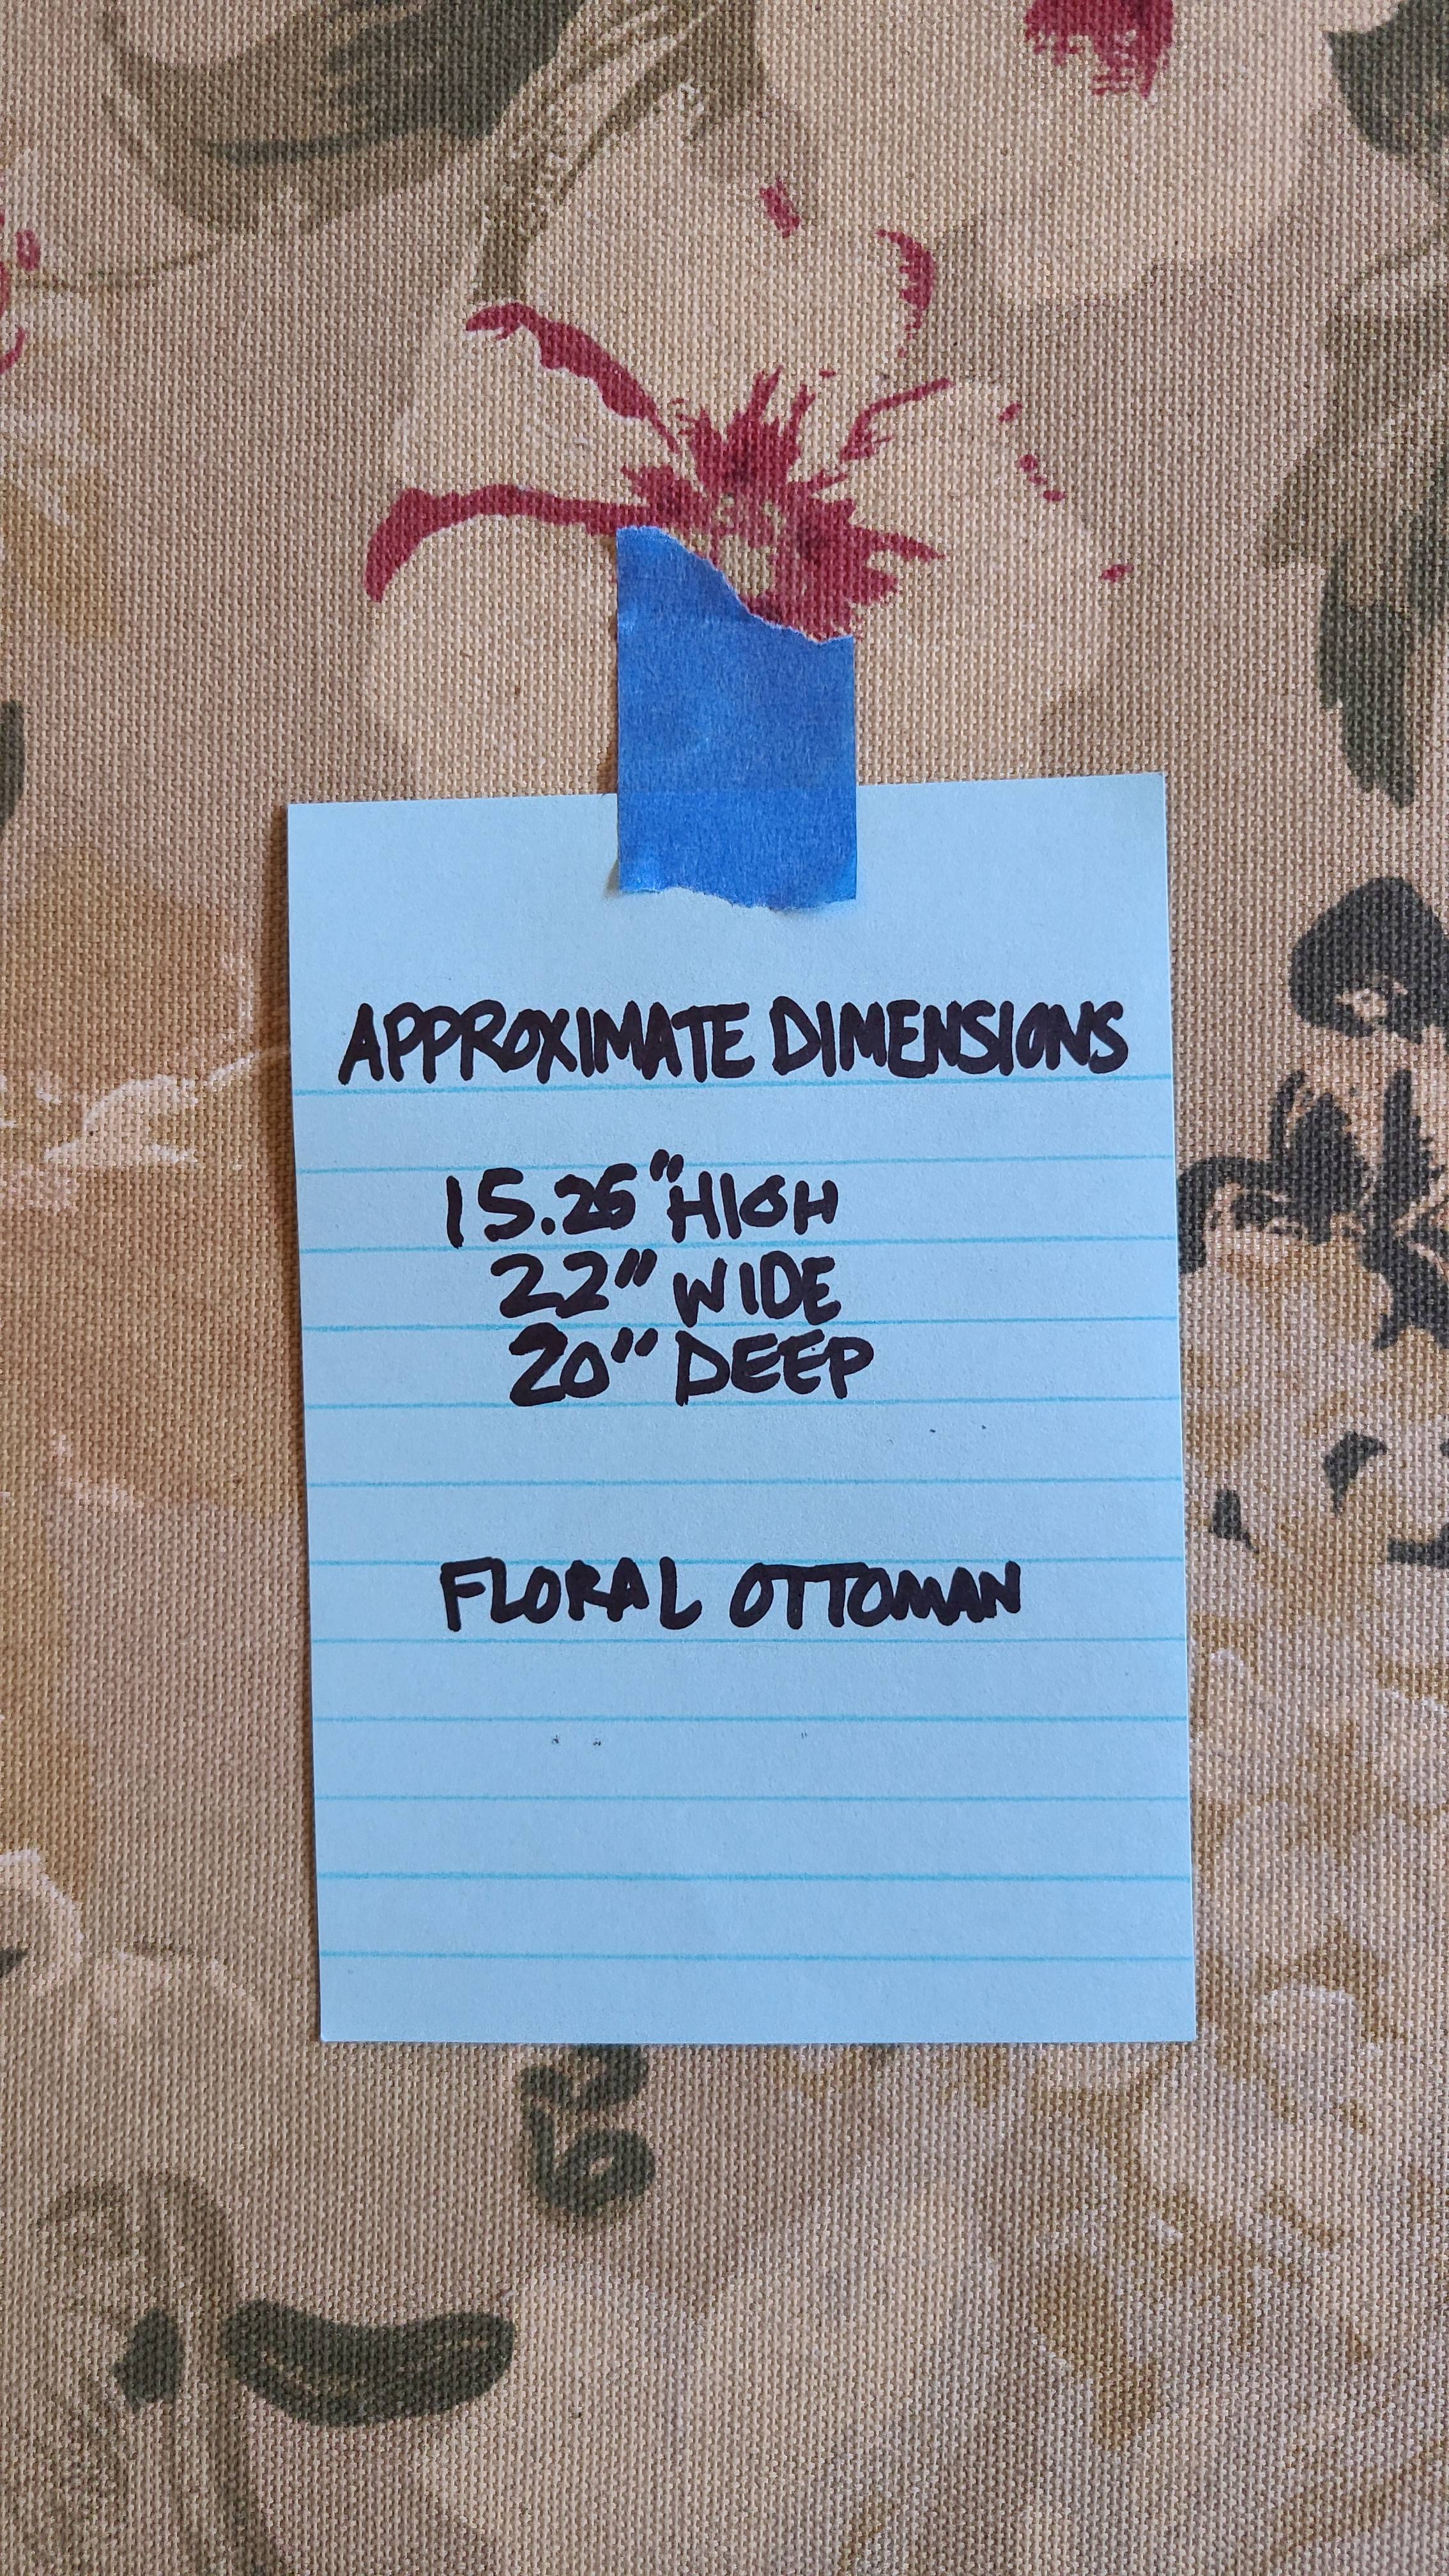 APPROXIMATE DIMENSIONS
15.25" HIGH
22" WIDE
20" DEEP
FLORAL OTTOMAN